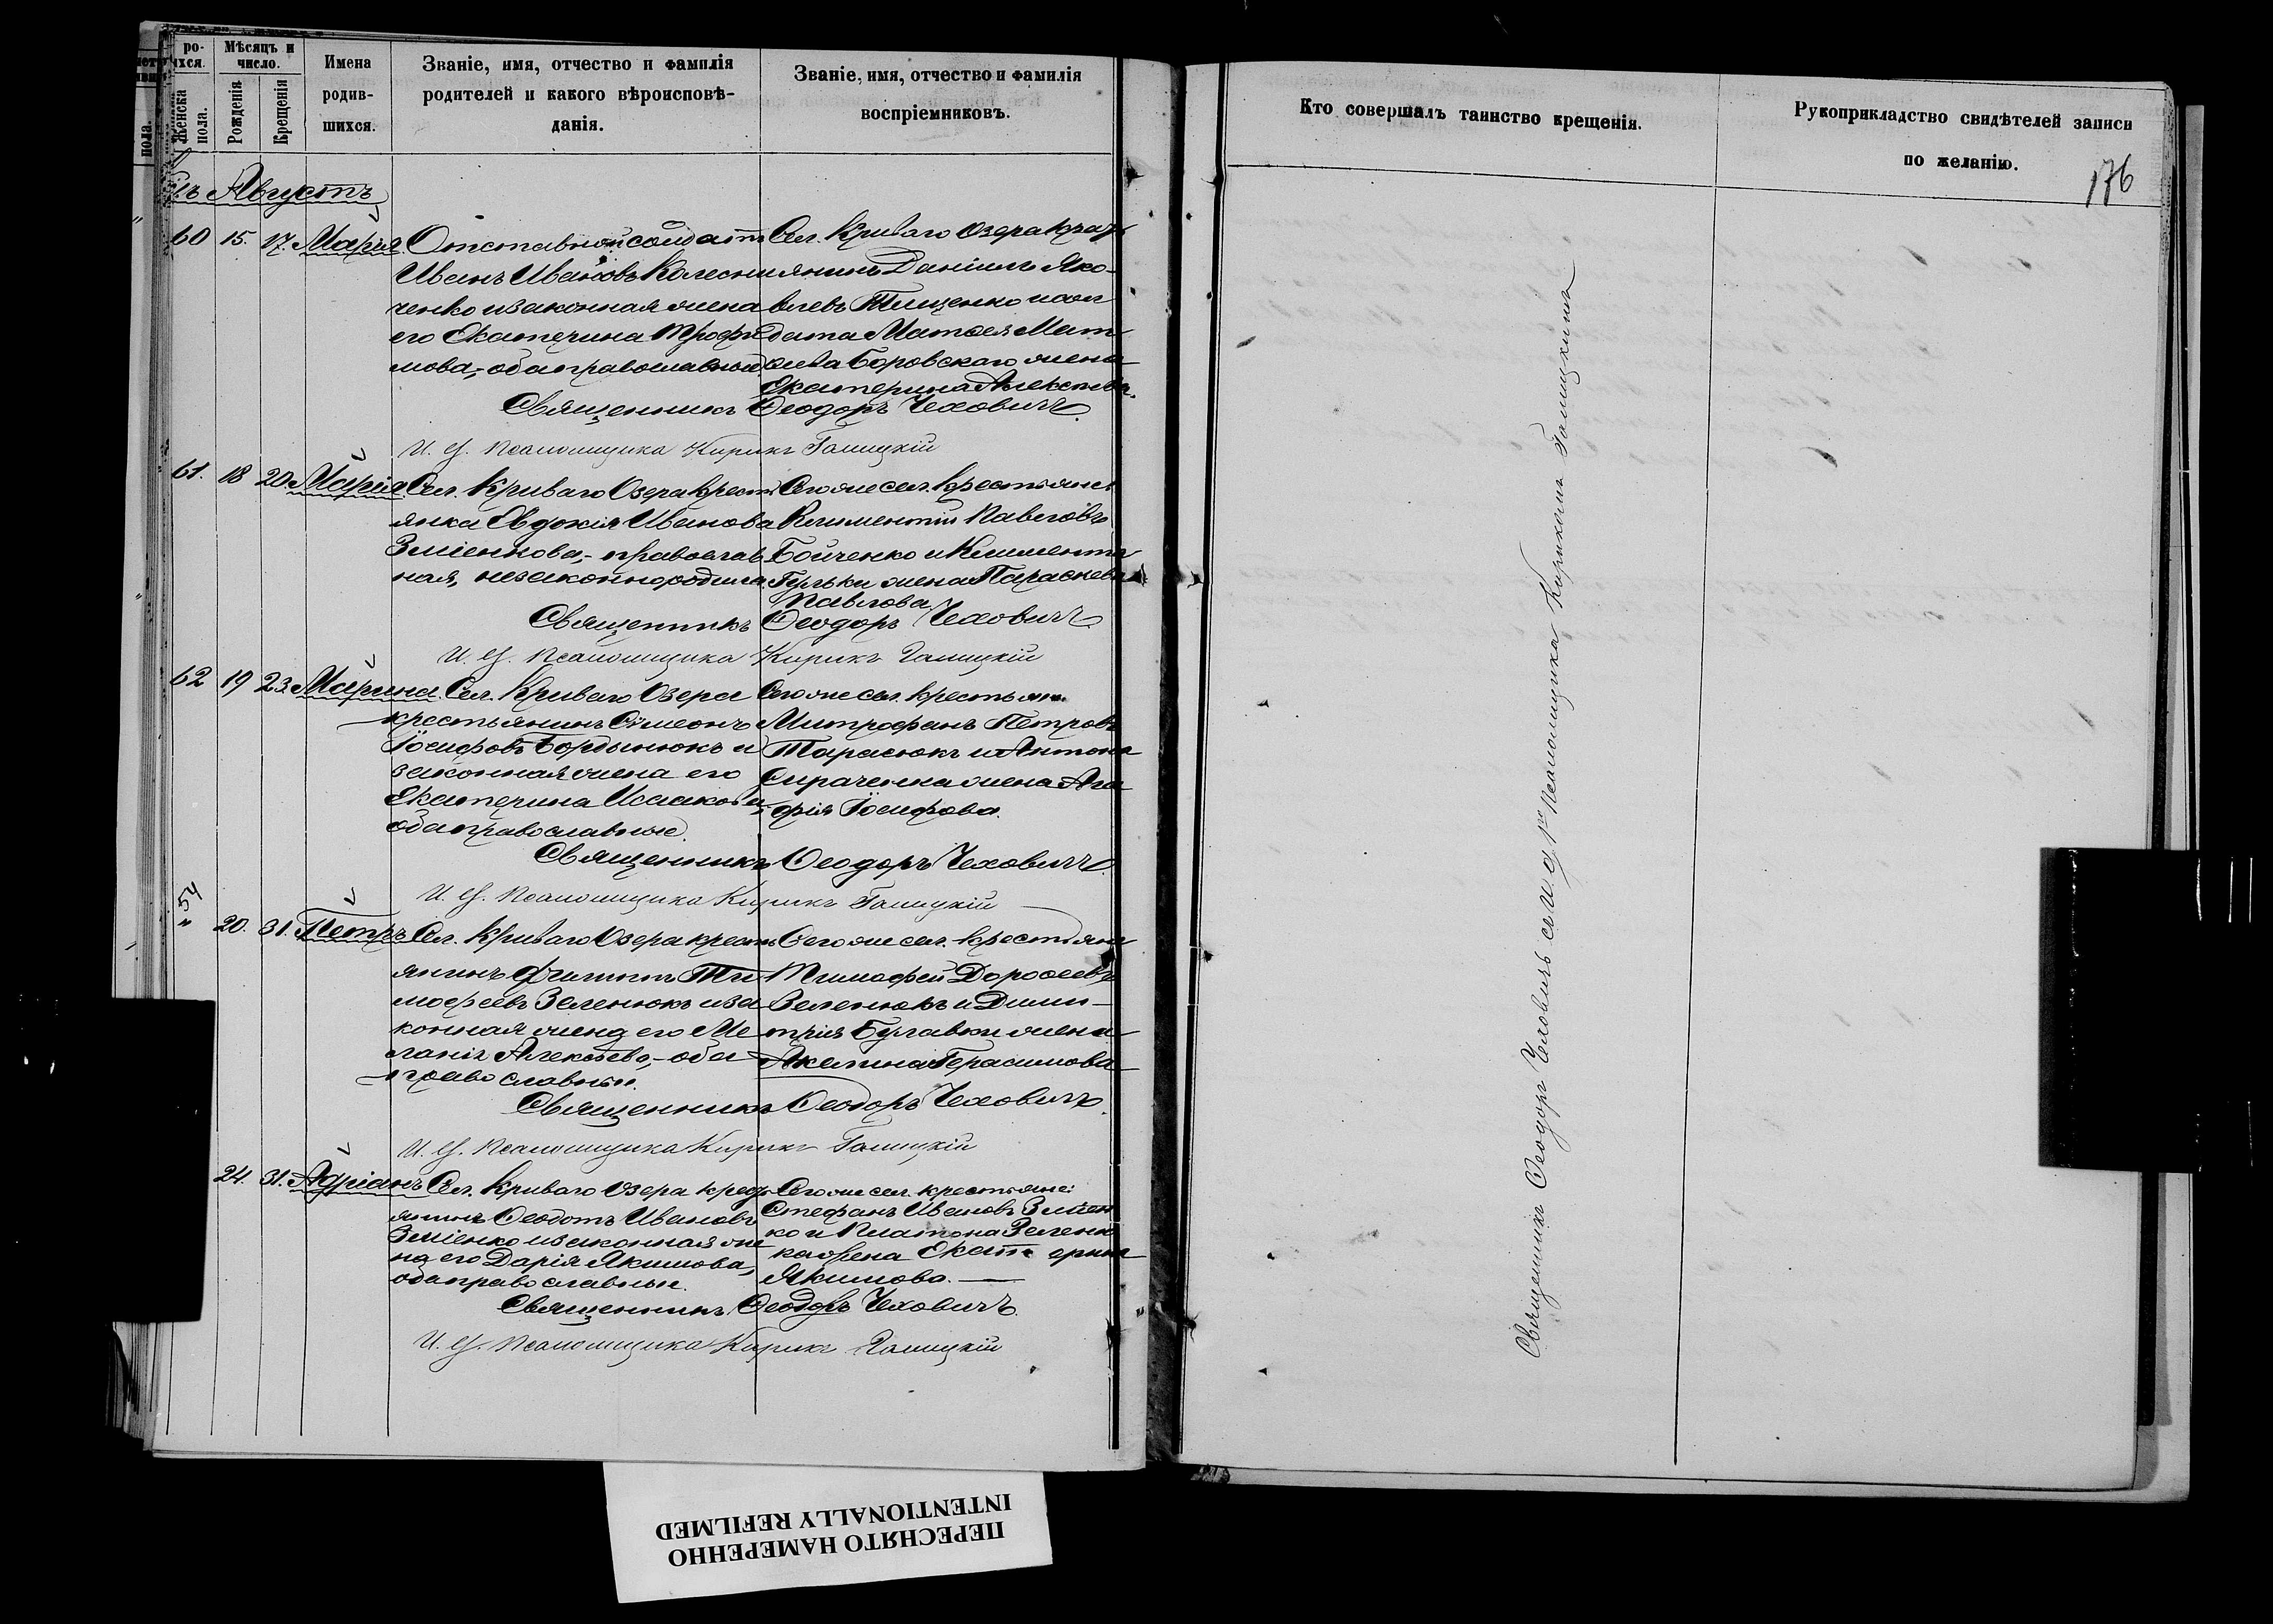 ро-
хся.
Женска
пола.
Мѣсяцъ и
число.
Рожденія
Крещенія
Имена
родив-
шихся.
Званіе, имя, отчество и фамилія
родителей и какого вѣроисповѣ-
данія.
Званіе, имя, отчество и фамилія
воспріемниковъ.
Кто совершалъ таинство крещенія.
Рукоприкладство свидѣтелей записи
по желанію.
176
Августъ
60 15. 17. Марія
Отставной солдатъ
Иванъ Ивановъ Колесни
ченко и законная жена
его Екатерина Трофи
мова,- оба православные
Сел. Криваго Озера крес
янинъ Даніилъ Яко-
влевъ Тищенко и сол
дата Матвея Мат
вѣева Боровскаго жена
Екатерина Алексѣева.
Священникъ Ѳеодоръ Чеховичъ
И. д. Псаломщика Кирикъ Галицкій
61. 18 20. Марія
Сел. Криваго Озера крест
янка Евдокія Иванова
Зміенкова,- православ
ная, незаконнорожденная
Того же сел. крестьяне
Климентій Павловъ
Бойченко и Климента
Гульки жена Параскева
Павлова.
Священникъ Ѳеодоръ Чеховичъ
И. д. Псаломщика Кирикъ Галицкій
62 19 23. Марина
Сел. Криваго Озера
крестьянинъ Симеонъ
Іосифовъ Бордынюкъ и
законная жена его
Екатерина Исаакова,
оба православные.
Того же сел. крестьян
Митрофанъ Петровъ
Тарасюкъ и Антона
жена Ага
фія Іосифова.
Священникъ Ѳеодоръ Чеховичъ
И. д. Псаломщика Кирикъ Галицкій
54
" 20. 31. Петръ
Сел. Криваго Озера крест
янинъ Филиппъ Ти
мофеевъ Зеленюкъ и за
конная жена его Ме
ланія Алексѣева,- оба
православные.
Того же сел. крестьяне
Тимофей Дорофеевъ
Зеленюкъ и Дими-
трія Булавки жена
Акелина Герасимова
Священникъ Ѳеодоръ Чеховичъ
И. д. Псаломщика Кирикъ Галицкій
24. 31. Адріанъ
Сел. Криваго Озера крест
янинъ Ѳеодотъ Ивановъ
Зміенко и законная же
на его Дарія Якимова,
оба православные.
Того же сел. крестьяне:
Стефанъ Ивановъ Зміен
ко и Платона Зеленю
ка жена Екатерина
Якимова.
Священникъ Ѳеодоръ Чеховичъ
И. д. Псаломщика Кирикъ Галицкій
Священникъ Ѳеодоръ Чеховичъ съ и. д. Псаломщика Кирикомъ Галицкимъ
ПЕРЕСНЯТО НАМЕРЕННО
INTENTIONALLY REFILMED